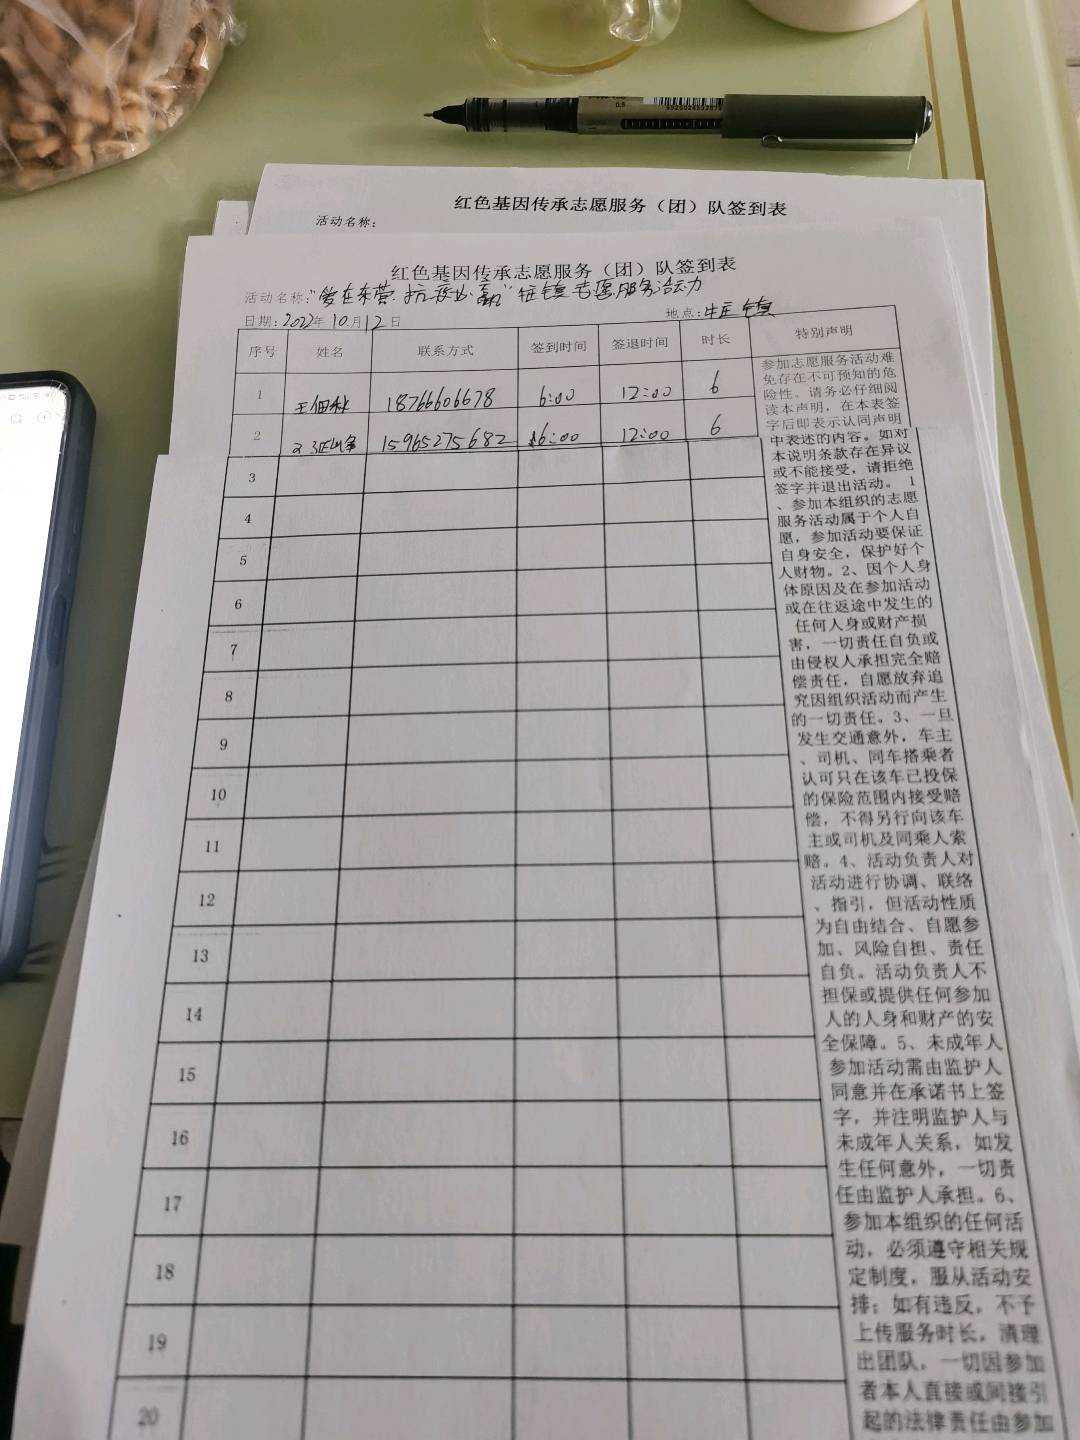 0.5
6920024532872
红色基因传承志愿服务（团）队签到表
活动名称：
红色基因传承志愿服务（团）队签到表
活动名称："爱在东营 抗疫必赢"牛庄镇志愿服务活动
日期：2022年10月12日
地点：牛庄镇
序号 姓名 联系方式 签到时间 签退时间 时长 特别声明
1 18766606678 6:00 12:00 6
2 15965275682 6:00 12:00 6
3
4
5
6
7
8
9
10
11
12
13
14
15
16
17
18
19
20
参加志愿服务活动难
免存在不可预知的危
险性。请务必仔细阅
读本声明，在本表签
字后即表示认同声明
中表述的内容。如对
本说明条款存在异议
或不能接受，请拒绝
签字并退出活动。 1
、参加本组织的志愿
服务活动属于个人自
愿，参加活动要保证
自身安全，保护好个
人财物。2、因个人身
体原因及在参加活动
或在往返途中发生的
任何人身或财产损
害，一切责任自负或
由侵权人承担完全赔
偿责任，自愿放弃追
究因组织活动而产生
的一切责任。3、一旦
发生交通意外，车主
、司机、同车搭乘者
认可只在该车已投保
的保险范围内接受赔
偿，不得另行向该车
主或司机及同乘人索
赔。4、活动负责人对
活动进行协调、联络
、指引，但活动性质
为自由结合、自愿参
加、风险自担、责任
自负。活动负责人不
担保或提供任何参加
人的人身和财产的安
全保障。5、未成年人
参加活动需由监护人
同意并在承诺书上签
字，并注明监护人与
未成年人关系，如发
生任何意外，一切责
任由监护人承担。6、
参加本组织的任何活
动，必须遵守相关规
定制度，服从活动安
排；如有违反，不予
上传服务时长，清理
出团队，一切因参加
者本人直接或间接引
起的法律责任由参加